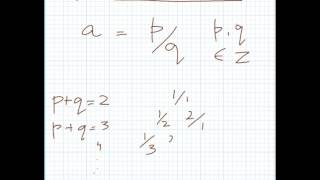 a = p/q p, q
∈ Z
p+q = 2 1/1
p+q = 3 1/2 2/1
4 1/3